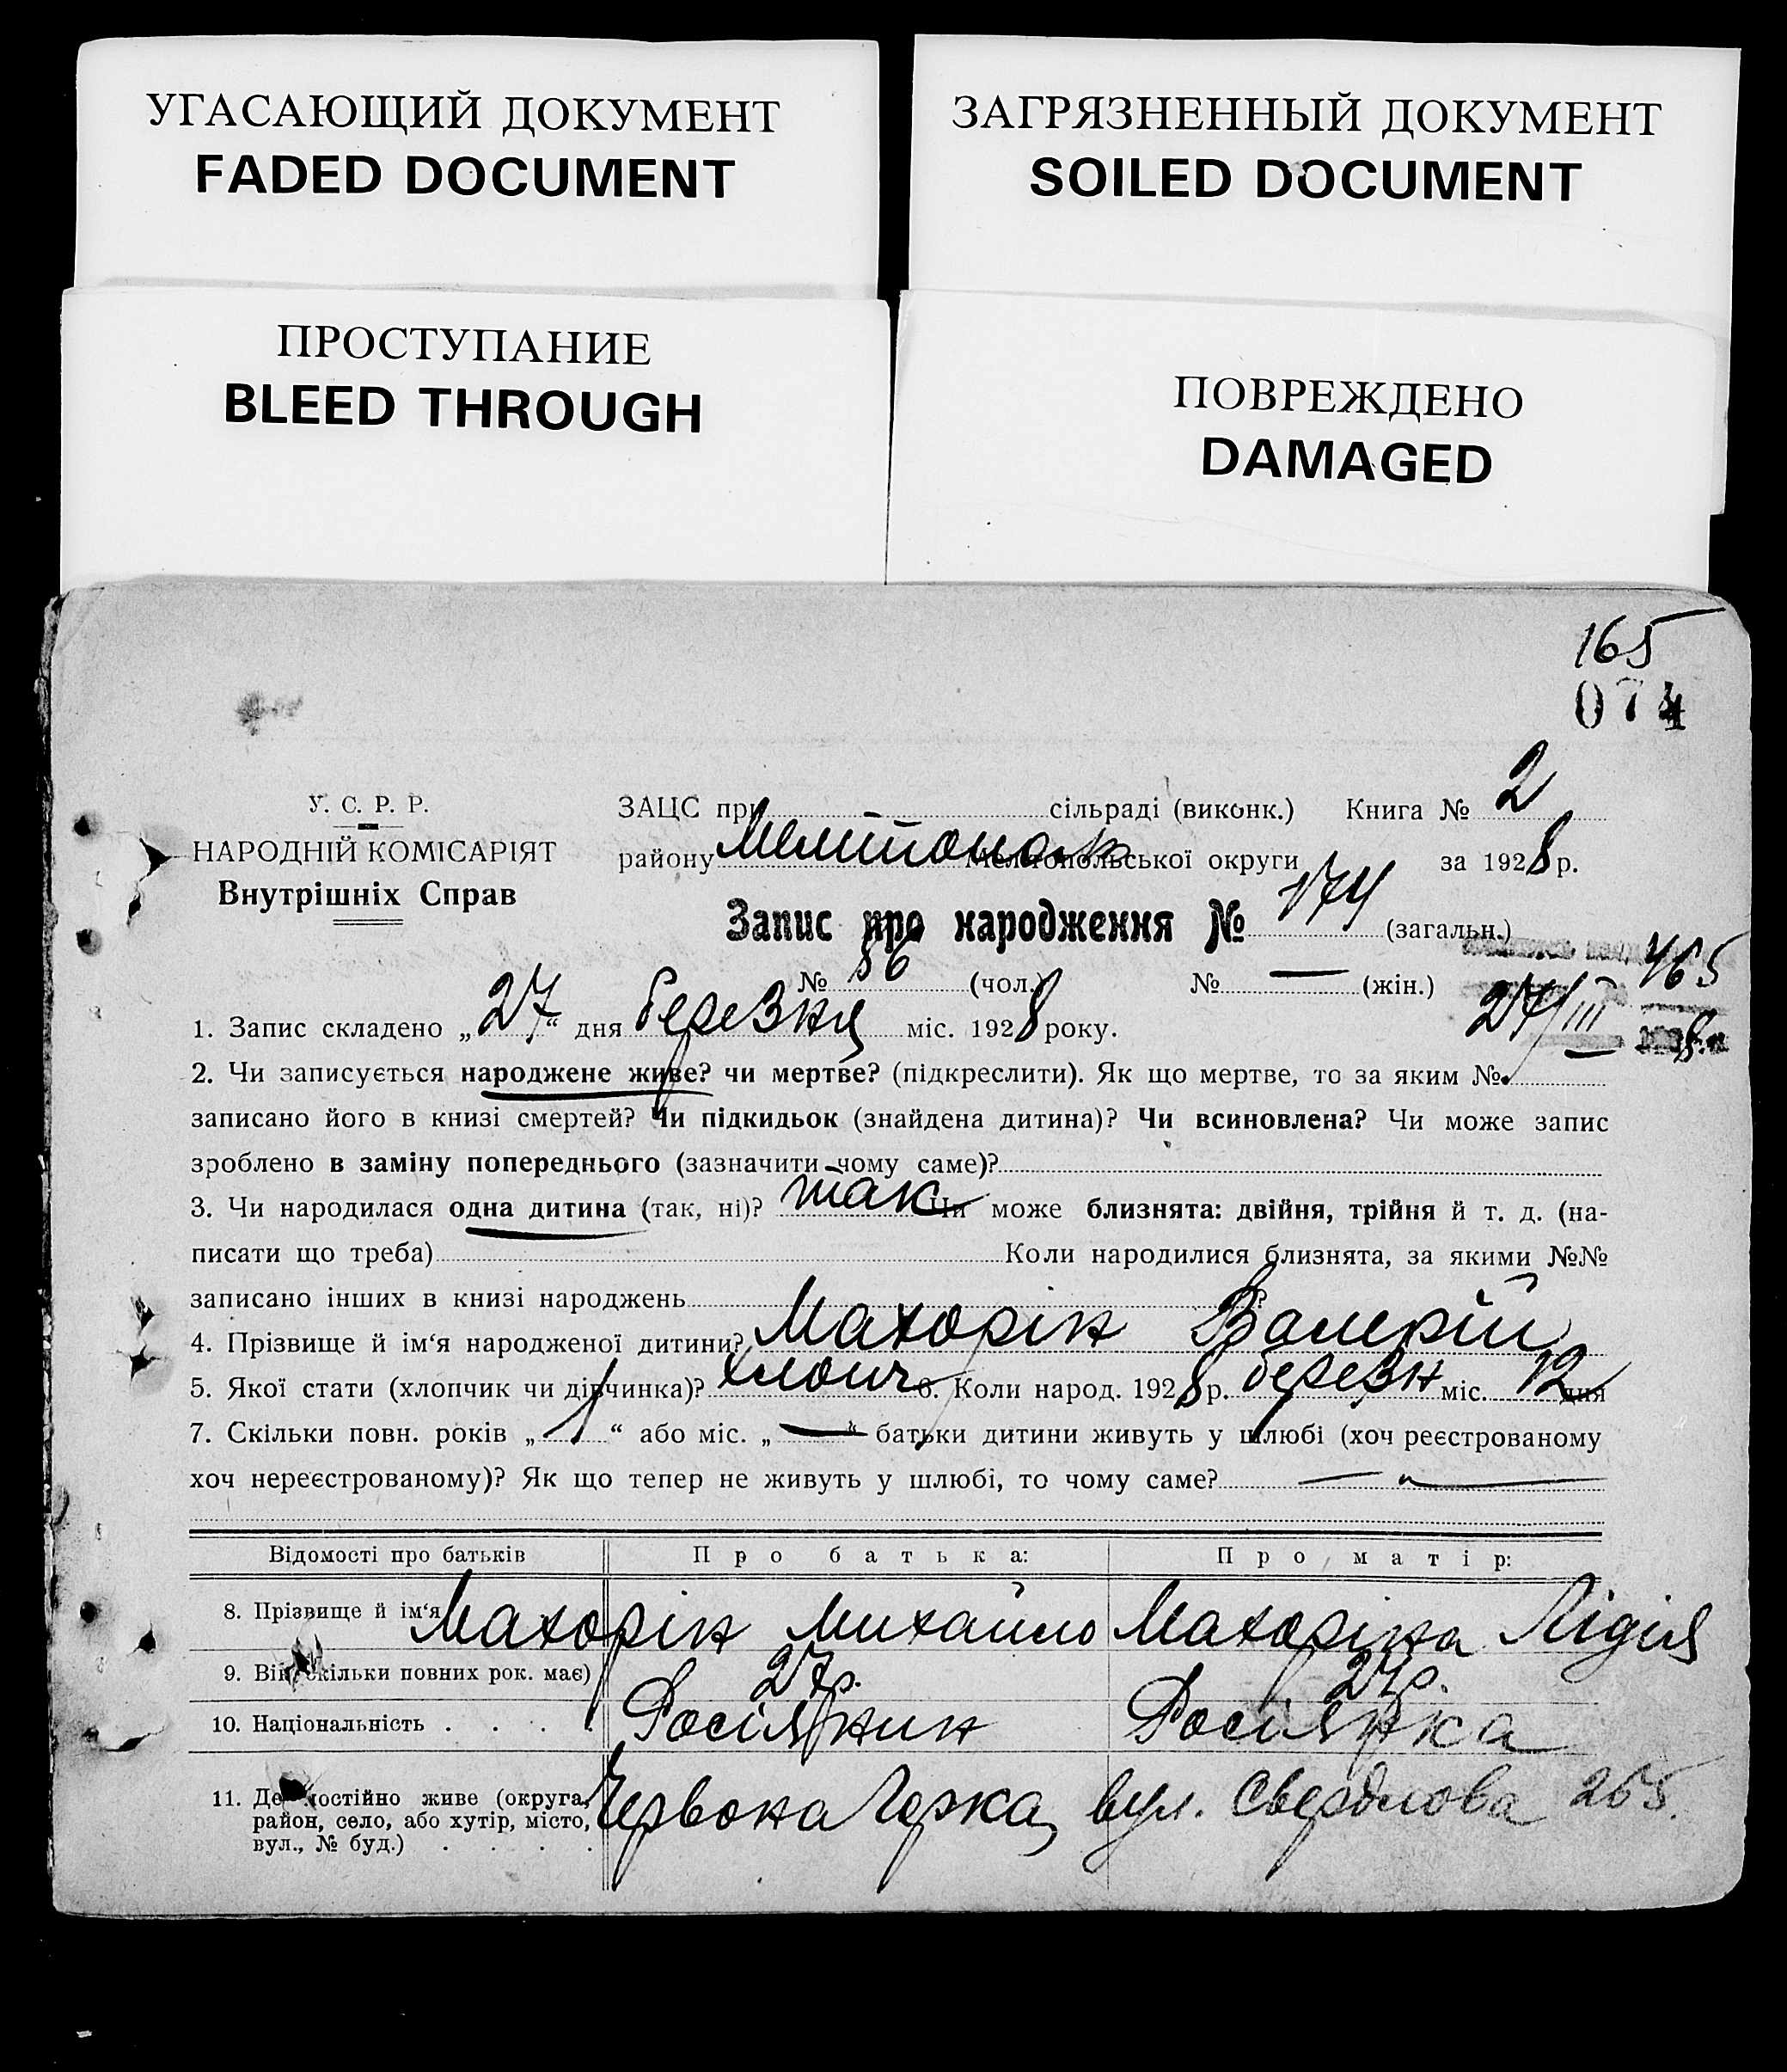 УГАСАЮЩИЙ ДОКУМЕНТ
FADED DOCUMENT
ЗАГРЯЗНЕННЫЙ ДОКУМЕНТ
SOILED DOCUMENT
ПРОСТУПАНИЕ
BLEED THROUGH
ПОВРЕЖДЕНО
DAMAGED
165
074
У. С. Р. Р.
НАРОДНІЙ КОМІСАРІЯТ
Внутрішніх Справ
ЗАЦС при сільраді (виконк.) Книга № 2
району Мелитопол Мелітопольської округи за 1928 р.
Запис про народження № 174 (загальн.)
№ 86 (чол.) № — (жін.)
465
27/III
8
1. Запис складено „27“ дня березня міс. 1928 року.
2. Чи записується народжене живе? чи мертве? (підкреслити). Як що мертве, то за яким №
записано його в книзі смертей? Чи підкидьок (знайдена дитина)? Чи всиновлена? Чи може запис
зроблено в заміну попереднього (зазначити чому саме)?
3. Чи народилася одна дитина (так, ні)? так Чи може близнята: двійня, трійня й т. д. (на-
писати що треба) Коли народилися близнята, за якими №№
записано інших в книзі народжень ?
4. Прізвище й ім‘я народженої дитини? Махорін Валерій
5. Якої стати (хлопчик чи дівчинка)? хлопч 6. Коли народ. 1928 р. березн міс. 12 дня
7. Скільки повн. років „1“ або міс. „—“ батьки дитини живуть у шлюбі (хоч реєстрованому
хоч нереєстрованому)? Як що тепер не живуть у шлюбі, то чому саме?
Відомості про батьків Про батька: Про матір:
8. Прізвище й ім‘я Махорін Михайло Махоріна Лідія
9. Вік (скільки повних рок. має) 27 р. 27 р.
10. Національність . . . . Росіянин Росіянка
11. Де постійно живе (округа, район, село, або хутір, місто, вул., № буд.) . . . . Червона Горка, вул. Свердлова 265.